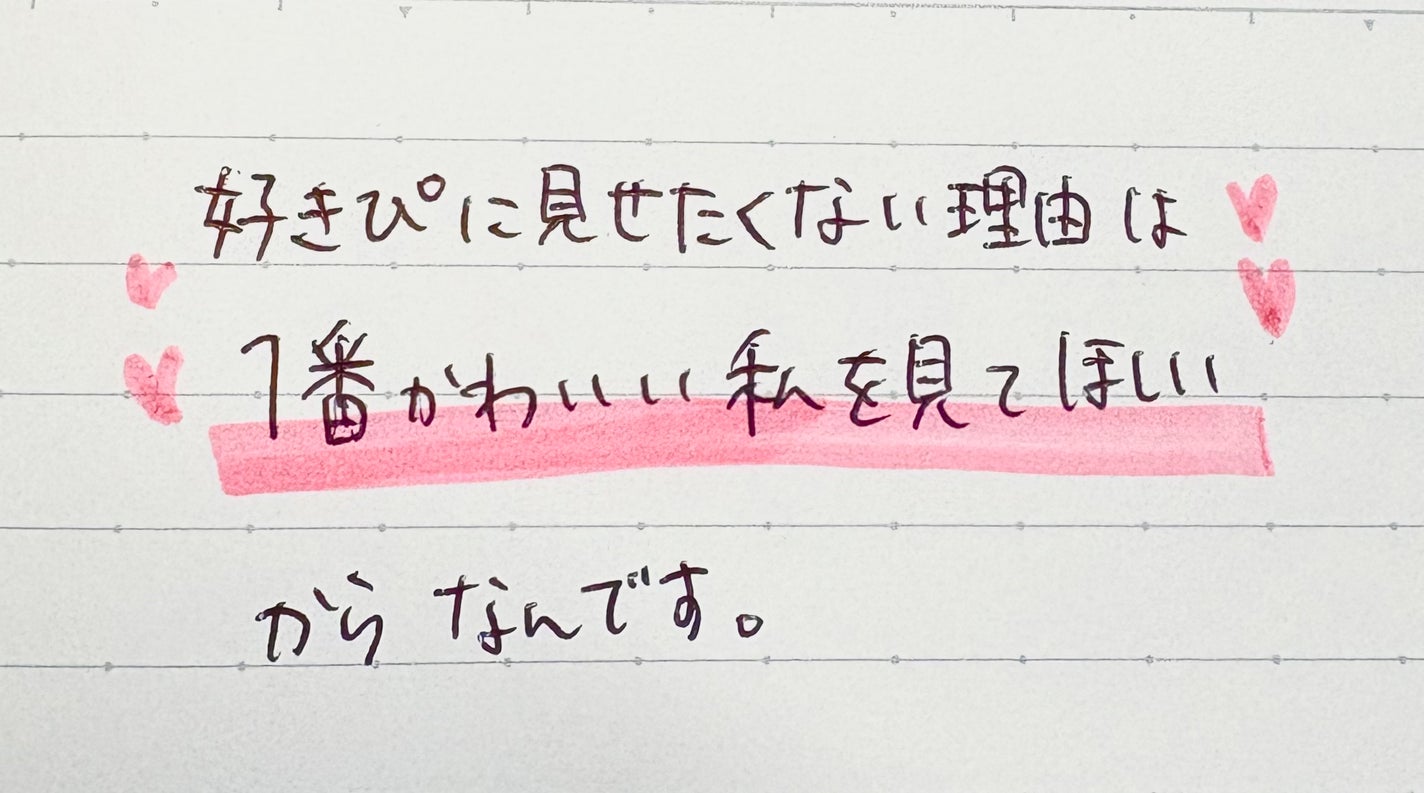 好きぴに見せたくない理由は
1番かわいい私を見てほしい
からなんです。